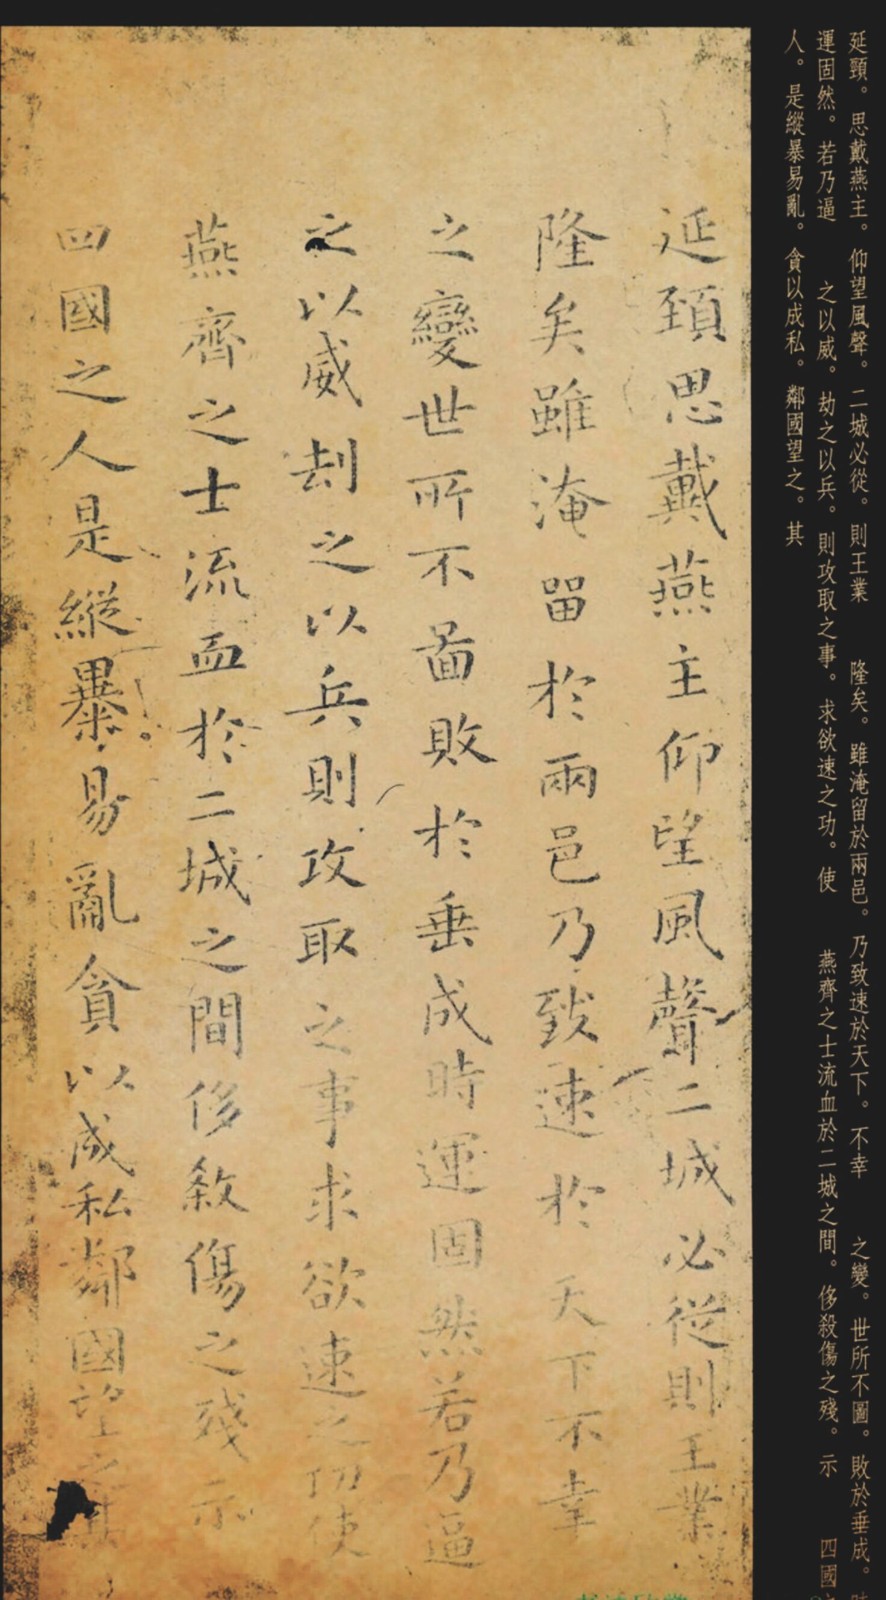 延頸。思戴燕主。仰望風聲。二城必從。則王業　隆矣。雖淹留於兩邑。乃致速於天下。不幸　之變。世所不圖。敗於垂成。時
運固然。若乃逼　之以威。劫之以兵。則攻取之事。求欲速之功。使　燕齊之士流血於二城之間。侈殺傷之殘。示　四國之
人。是縱暴易亂。貪以成私。鄰國望之。其
延頚思戴燕主仰望風聲二城必從則王業
隆矣雖淹留於兩邑乃致速於天下不幸
之變世所不啚敗於垂成時運固然若乃逼
之以威刦之以兵則攻取之事求欲速之功使
燕齊之士流血於二城之間侈敘傷之殘示
四國之人是縱暴易亂貪以成私鄰國望之其